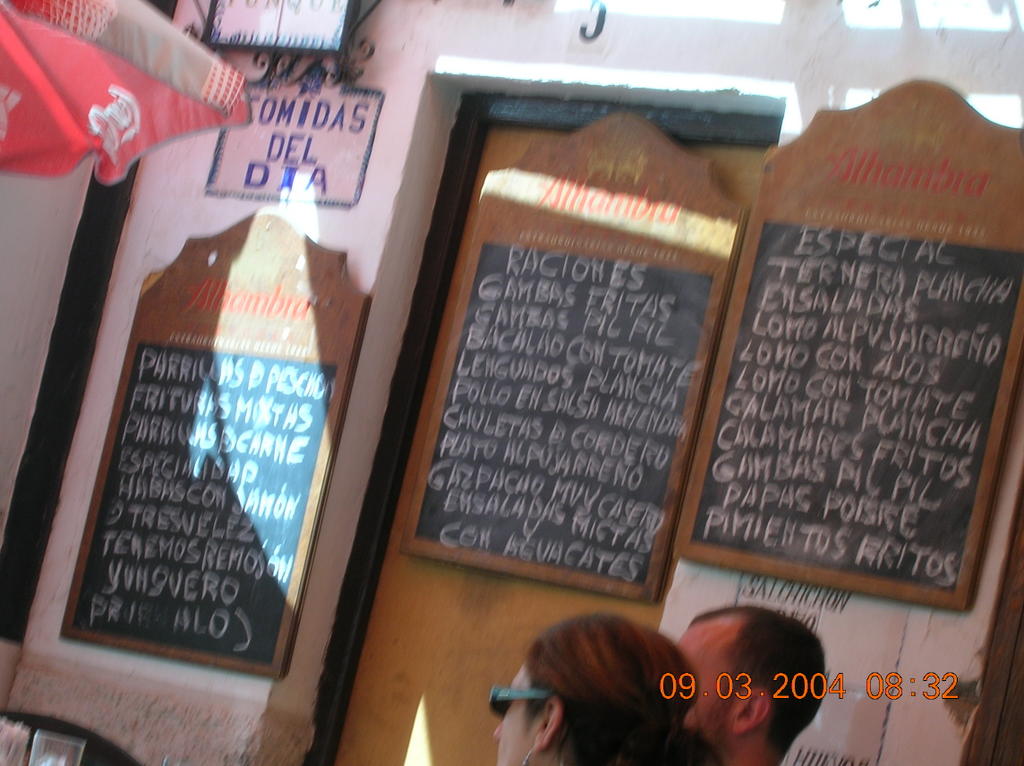 YUNQUE
COMIDAS
DEL
DIA
Alhambra
PARRILLAS D PESCADO
FRITURAS MIXTAS
PARRILLAS D CARNE
ESPECIALIDAD
HABAS CON JAMÓN
D TREVELEZ
TENEMOS REMOJÓN
YUNQUERO
PRUEBALO)
Alhambra
RACIONES
GAMBAS FRITAS
GAMBAS PIL PIL
BACALAO CON TOMATE
LENGUADOS PLANCHA
POLLO EN SALSA ALMENDRA
CHULETAS D CORDERO
PLATO ALPUJARREÑO
GAZPACHO MUY CASERO
ENSALADAS MIXTAS
Y
CON AGUACATES
Alhambra
ESPECIAL
TERNERA PLANCHA
ENSALADAS
LOMO ALPUSARREÑO
LOMO CON AJOS
LOMO CON TOMATE
CALAMAR PLANCHA
CALAMARES FRITOS
GAMBAS PIL PIL
PAPAS POBRE
PIMIENTOS FRITOS
SALCHICHON
09.03.2004 08:32